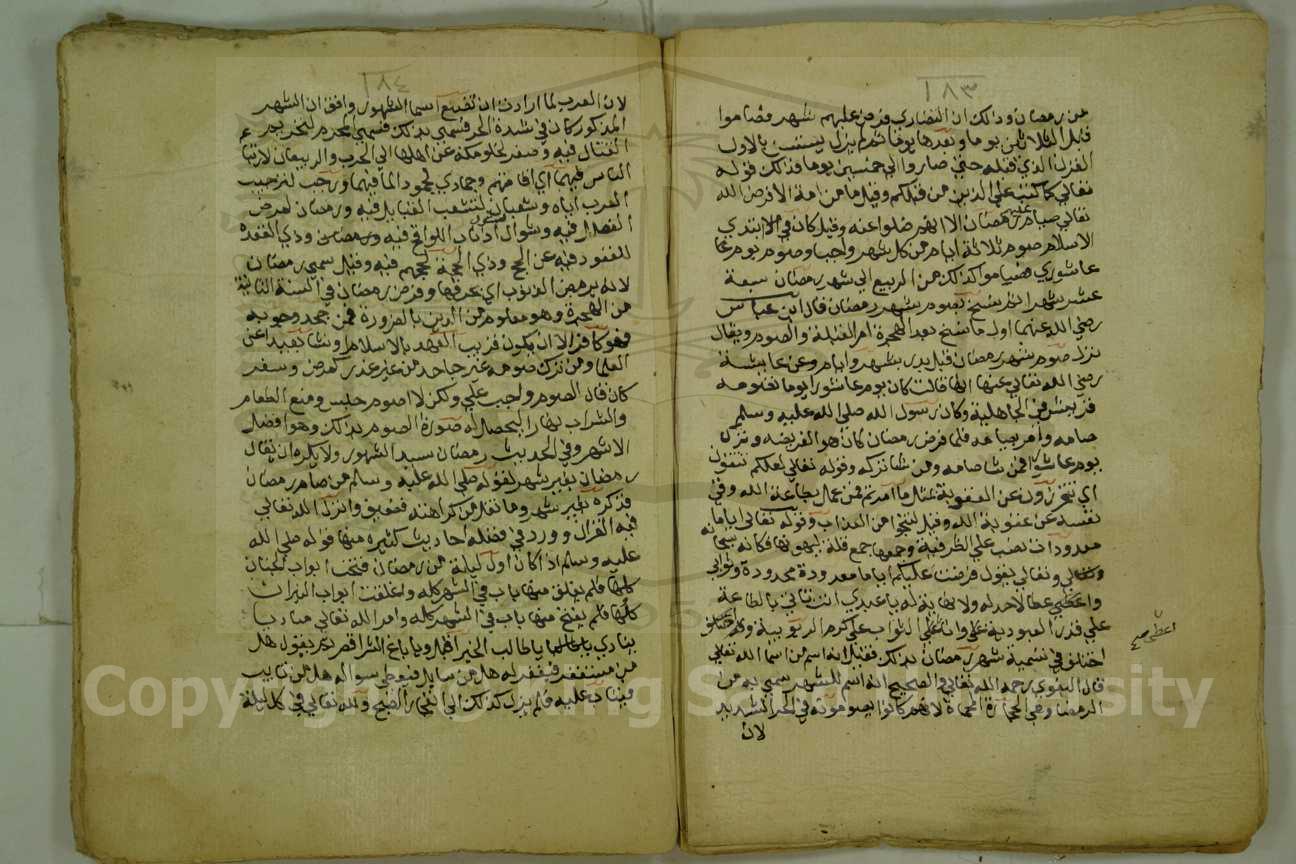 ١٨٣
من رمضان وذلك ان النصاري فرض عليهم شهر فصاموا
قبل الثلاثين يوما وبعدها يوما ثم لم يزل يستسن بالاول
القرن الذي قبله حتي صاروا الي خمسين يوما فذلك قوله
تعالي كما كتب علي الذين من قبلكم وقيل ما من امة الا فرض الله
تعالي صيام رمضان الا انهم ضلوا عنه وقيل كان في الابتدي
الاسلام صوم ثلاثة ايام من كل شهر واجبا وصوم يوم
عاشوري فصاموا كذلك من الربيع الي شهر رمضان سبعة
عشر شهرا ثم نسخ بصوم شهر رمضان قال ابن عباس
رضي الله عنهما اول ما نسخ بعد الهجرة امر القبلة والصوم ويقال
نزل صوم شهر رمضان قبل بدر بشهر وايام وعن عايشة
رضي الله تعالي عنها انها قالت كان يوم عاشورا يوما تصومه
قريش في الجاهلية وكان رسول الله صلي الله عليه وسلم
صامه وامر بصيامه فلما فرض رمضان كان هو الفريضه وترك
يوم عاشورا فمن شا صامه ومن شا تركه وقوله تعالي لعلكم تتقون
اي تحترزون عن العقوبة عمل ما امرتم فمن عمل بطاعة الله وقي
نفسه عن عقوبة الله وقيل لينجوا من العذاب وقوله تعالي اياما
معدودات نصب علي الظرفية وجمعها جمع قلة ليهونها فكانه سبحا
وتعالي يقول فرضت عليكم اياما معدودة محدودة وثوابي
واعطي عطا لا حد له ولا نهاية له يا عبدي انت تاتي بالطاعة
علي قدر العبودية وانا اعطي الثواب علي كرم الربوبية
اعطي صح
اختلق في تسمية شهر رمضان بذلك فقيل انه اسم من اسما الله تعالي
قال البغوي رحمه الله تعالي والصحيح انه اسم للشهر سمي به من
الرمضا وهي الحجارة المحماة لانهم كانوا يصومونه في الحر الشديد
لان
١٨٤
لان العرب لما ارادت ان تضع اسما الشهور وافق ان الشهر
المذكور كان في شدة الحر فسمي بذلك فسمي المحرم لتحريم
القتال فيه وصفر لخلو مكة عن اهلها الي الحرب والربيعان لارتباع
الناس فيهما اي اقامتهم وجمادي لجمود الما فيهما ورجب لترجيب
العرب اياه وشعبان لتشعب القبايل فيه ورمضان لرمض
الفصال فيه وشوال لشول اذناب اللواقح فيه وذي القعده
للقعود فيه عن الحج وذي الحجة لحجهم فيه وقيل سمي رمضان
لانه يرمض الذنوب اي يحرقها وفرض رمضان في السنة الثانية
من الهجرة وهو معلوم من الدين بالضرورة فمن جحد وجوبه
فهو كافر الا ان يكون قريب العهد بالاسلام او نشا بعيدا عن
العلما ومن ترك صومه غير جاحد من غير عذر كمرض وسفر
كان قال الصوم واجب علي ولكن لا اصوم حبس ومنع الطعام
والشراب نهارا ليحصل له صورة الصوم بذلك وهو افضل
الاشهر وفي الحديث رمضان سيد الشهور ولا يكره ان يقال
رمضان بغير شهر لقوله صلي الله عليه وسلم من صام رمضان
فذكره بغير شهر وما نقل من كراهته فضعيف وانزل الله تعالي
فيه القران وورد في فضله احاديث كثيره منها قوله صلي الله
عليه وسلم اذا كان اول ليلة من رمضان فتحت ابواب الجنان
كلها فلم يغلق منها باب في الشهر كله واغلقت ابواب النيران
كلها فلم يفتح منها باب في الشهر كله وامر الله تعالي مناديا
ينادي يا طالب الخير اقبل ويا باغ الشر اقصر ثم يقول هل
من مستغفر فيغفر له هل من سايل فيعطي سواله هل من تايب
فيتاب عليه فلم يزل كذلك الي انفجار الصبح ولله تعالي في كل ليلة
Copyright © King Saud University